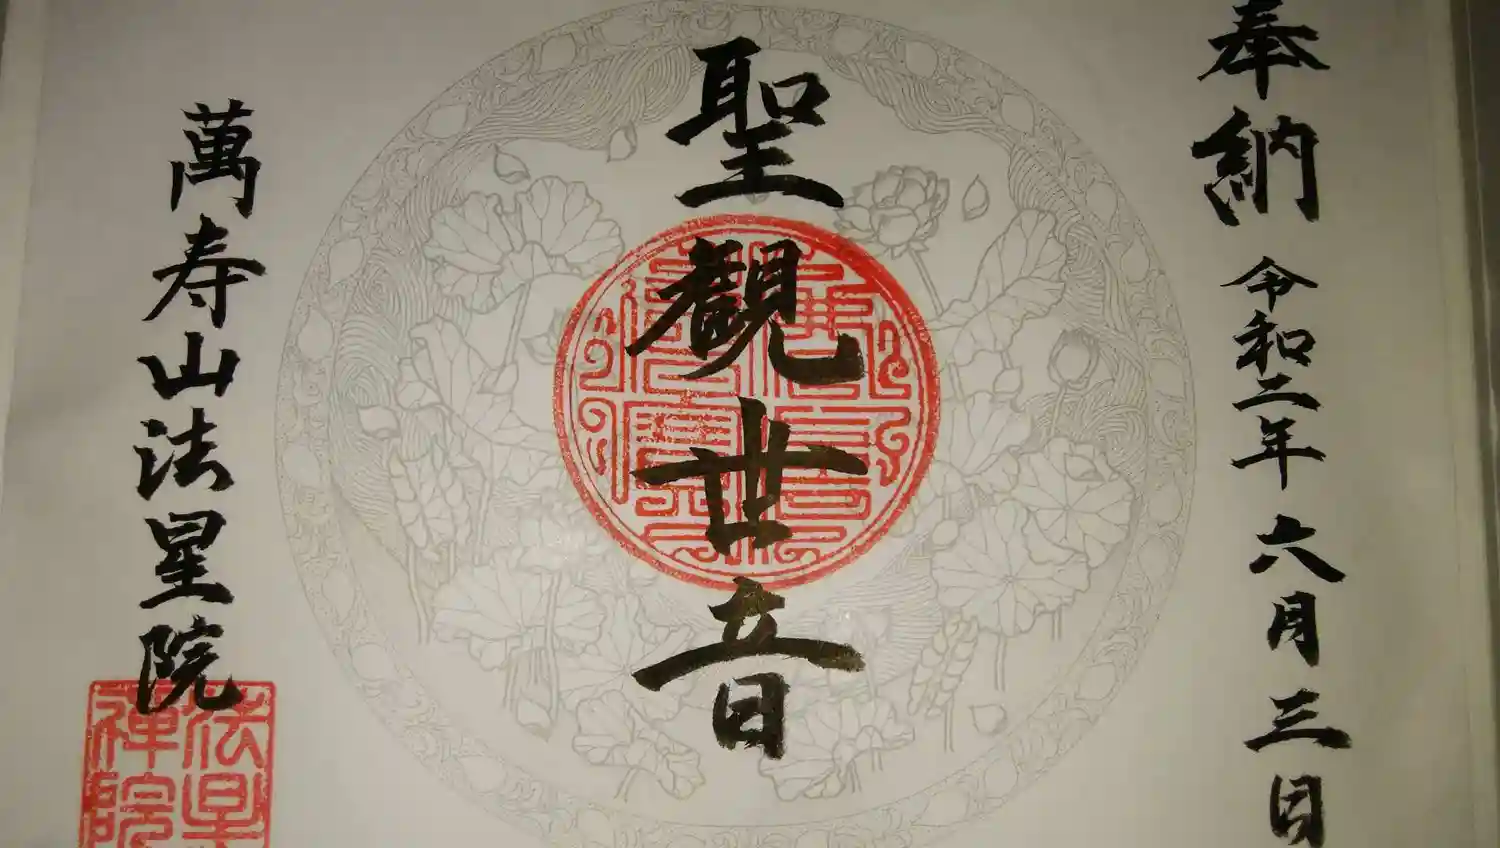 奉納 令和二年 六月 三日
聖觀世音
萬寿山法星院
法星禅院